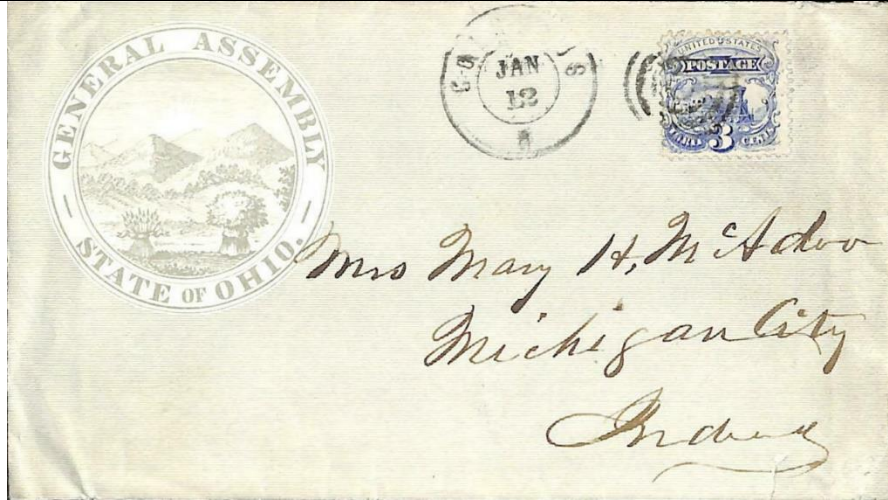 GENERAL ASSEMBLY
STATE OF OHIO.
JAN
12
UNITED STATES
POSTAGE
3
CENTS
Mrs Mary H. McAdoo
Michigan City
Indiana